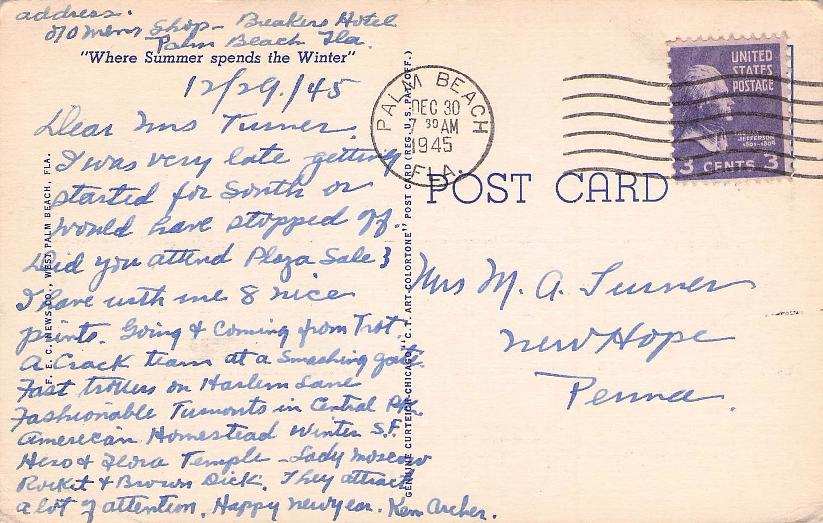 address.
c/o Mens Shop - Breakers Hotel
Palm Beach Fla.
"Where Summer spends the Winter"
12/29/45
Dear Mrs Turner.
I was very late getting
started for South or
would have stopped off.
Did you attend Plaza Sale?
I have with me 8 nice
prints. Going & Coming from Trot.
A Crack team at a Smashing gait.
Fast trotters on Harlem Lane
Fashionable Turnouts in Central Pk.
American Homestead Winter S.F.
Hero & Flora Temple - Lady Moscow
Rocket & Brown Dick. They attract
a lot of attention. Happy new year. Ken Archer.
F. E. C. NEWS CO., WEST PALM BEACH, FLA.
GENUINE CURTEICH-CHICAGO "C.T. ART-COLORTONE" POST CARD (REG. U.S. PAT. OFF.)
PALM BEACH
DEC 30
7 30 AM
1945
FLA.
UNITED
STATES
POSTAGE
JEFFERSON
1801-1809
3 CENTS 3
POST CARD
Mrs M. A. Turner
New Hope
Penna.